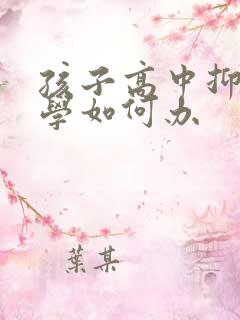 孩子高中抑
學如何办
葉某